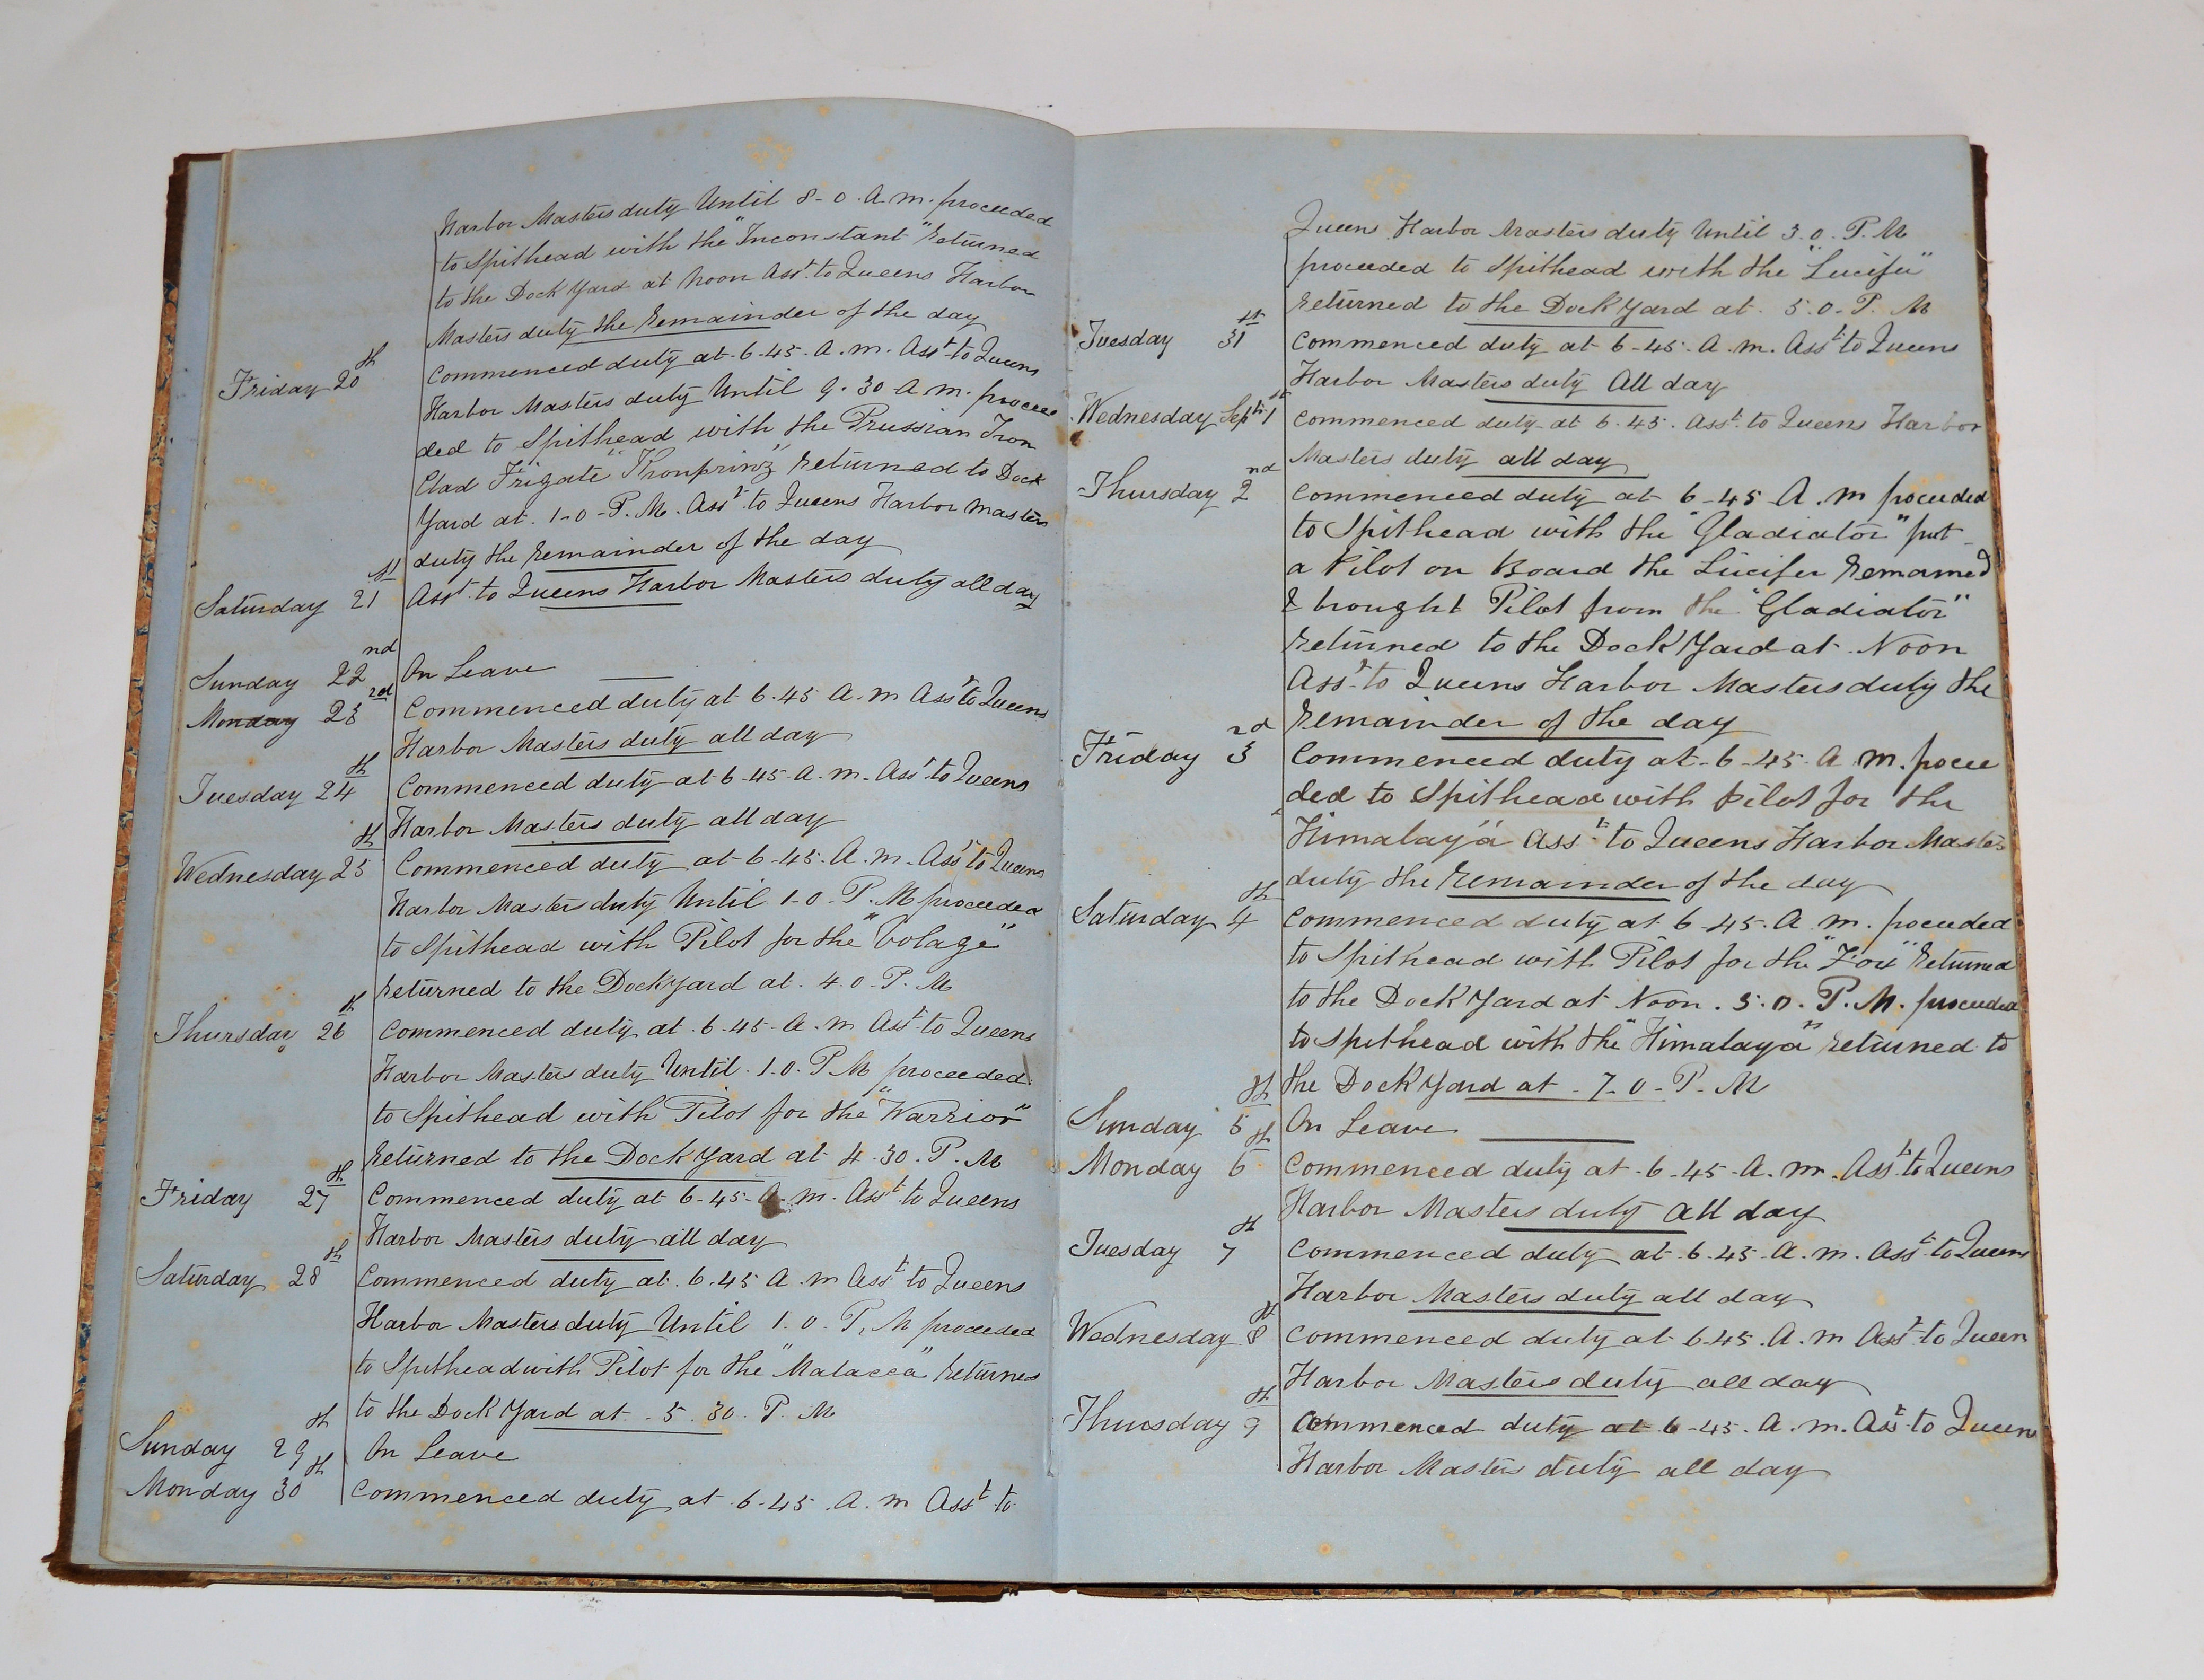 Harbor Masters duty Until 8-0. A. M. proceeded
to Spithead with the "Inconstant" returned
to the Dock Yard at Noon Asst. to Queens Harbor
Masters duty the remainder of the day
Friday 20th Commenced duty at 6-45. A. M. Asst. to Queens
Harbor Masters duty Until 9.30 A. M. procee
ded to Spithead with the Prussian Iron
Clad Frigate "Kronprinz" returned to Dock
Yard at. 1-0-P. M. Asst. to Queens Harbor Masters
duty the remainder of the day
Saturday 21st Asst. to Queens Harbor Masters duty all day
Sunday 22nd On Leave
Monday 23rd Commenced duty at 6-45 A. M Asst to Queens
Harbor Masters duty all day
Tuesday 24th Commenced duty at 6-45-A. M. Asst to Queens
Harbor Masters duty all day
Wednesday 25th Commenced duty at 6-45. A. M. Asst to Queens
Harbor Masters duty Until 1-0-P. M proceeded
to Spithead with Pilot for the "Volage"
returned to the Dock Yard at. 4.0-P. M
Thursday 26th Commenced duty at. 6-45-A. M Asst. to Queens
Harbor Masters duty Until. 1.0. P M proceeded
to Spithead with Pilot for the "Warrior"
returned to the Dock Yard at 4.30. P. M
Friday 27th Commenced duty at 6-45-A. M. Asst. to Queens
Harbor Masters duty all day
Saturday 28th Commenced duty at. 6.45 A. M Asst to Queens
Harbor Masters duty Until 1.0-P. M proceeded
to Spithead with Pilot for the "Malacca" returned
to the Dock Yard at. 5.30. P. M
Sunday 29th On Leave
Monday 30th Commenced duty at. 6-45. A. M Asst to
Queens Harbor Masters duty Until 3.0. P. M
proceeded to Spithead with the "Lucifer"
returned to the Dock Yard at. 5.0-P. M
Tuesday 31st Commenced duty at 6-45-A. M. Asst to Queens
Harbor Masters duty All day
Wednesday Sept 1st Commenced duty at 6.45. Asst. to Queens Harbor
Masters duty all day
Thursday 2nd Commenced duty at 6-45 A. M proceeded
to Spithead with the "Gladiator" put
a Pilot on Board the Lucifer Remained
& brought Pilot from the "Gladiator"
returned to the Dock Yard at. Noon
Asst. to Queens Harbor Masters duty the
remainder of the day
Friday 3rd Commenced duty at-6-45. A M. procee
ded to Spithead with pilot for the
"Himalaya" Asst. to Queens Harbor Masters
duty the Remainder of the day
Saturday 4th Commenced duty at 6-45. A. M. proceeded
to Spithead with Pilot for the "Fox" returned
to the Dock Yard at Noon. 5.0. P. M. proceeded
to Spithead with the "Himalaya" returned to
the Dock Yard at. 7-0-P. M
Sunday 5th On Leave
Monday 6th Commenced duty at. 6-45-A. M. Asst. to Queens
Harbor Masters duty all day
Tuesday 7th Commenced duty at. 6-45-A. M. Asst. to Queens
Harbor Masters duty all day
Wednesday 8th Commenced duty at 6-45. A. M Asst to Queen
Harbor Masters duty all day
Thursday 9th Commenced duty at 6-45. A. M. Asst to Queens
Harbor Masters duty all day